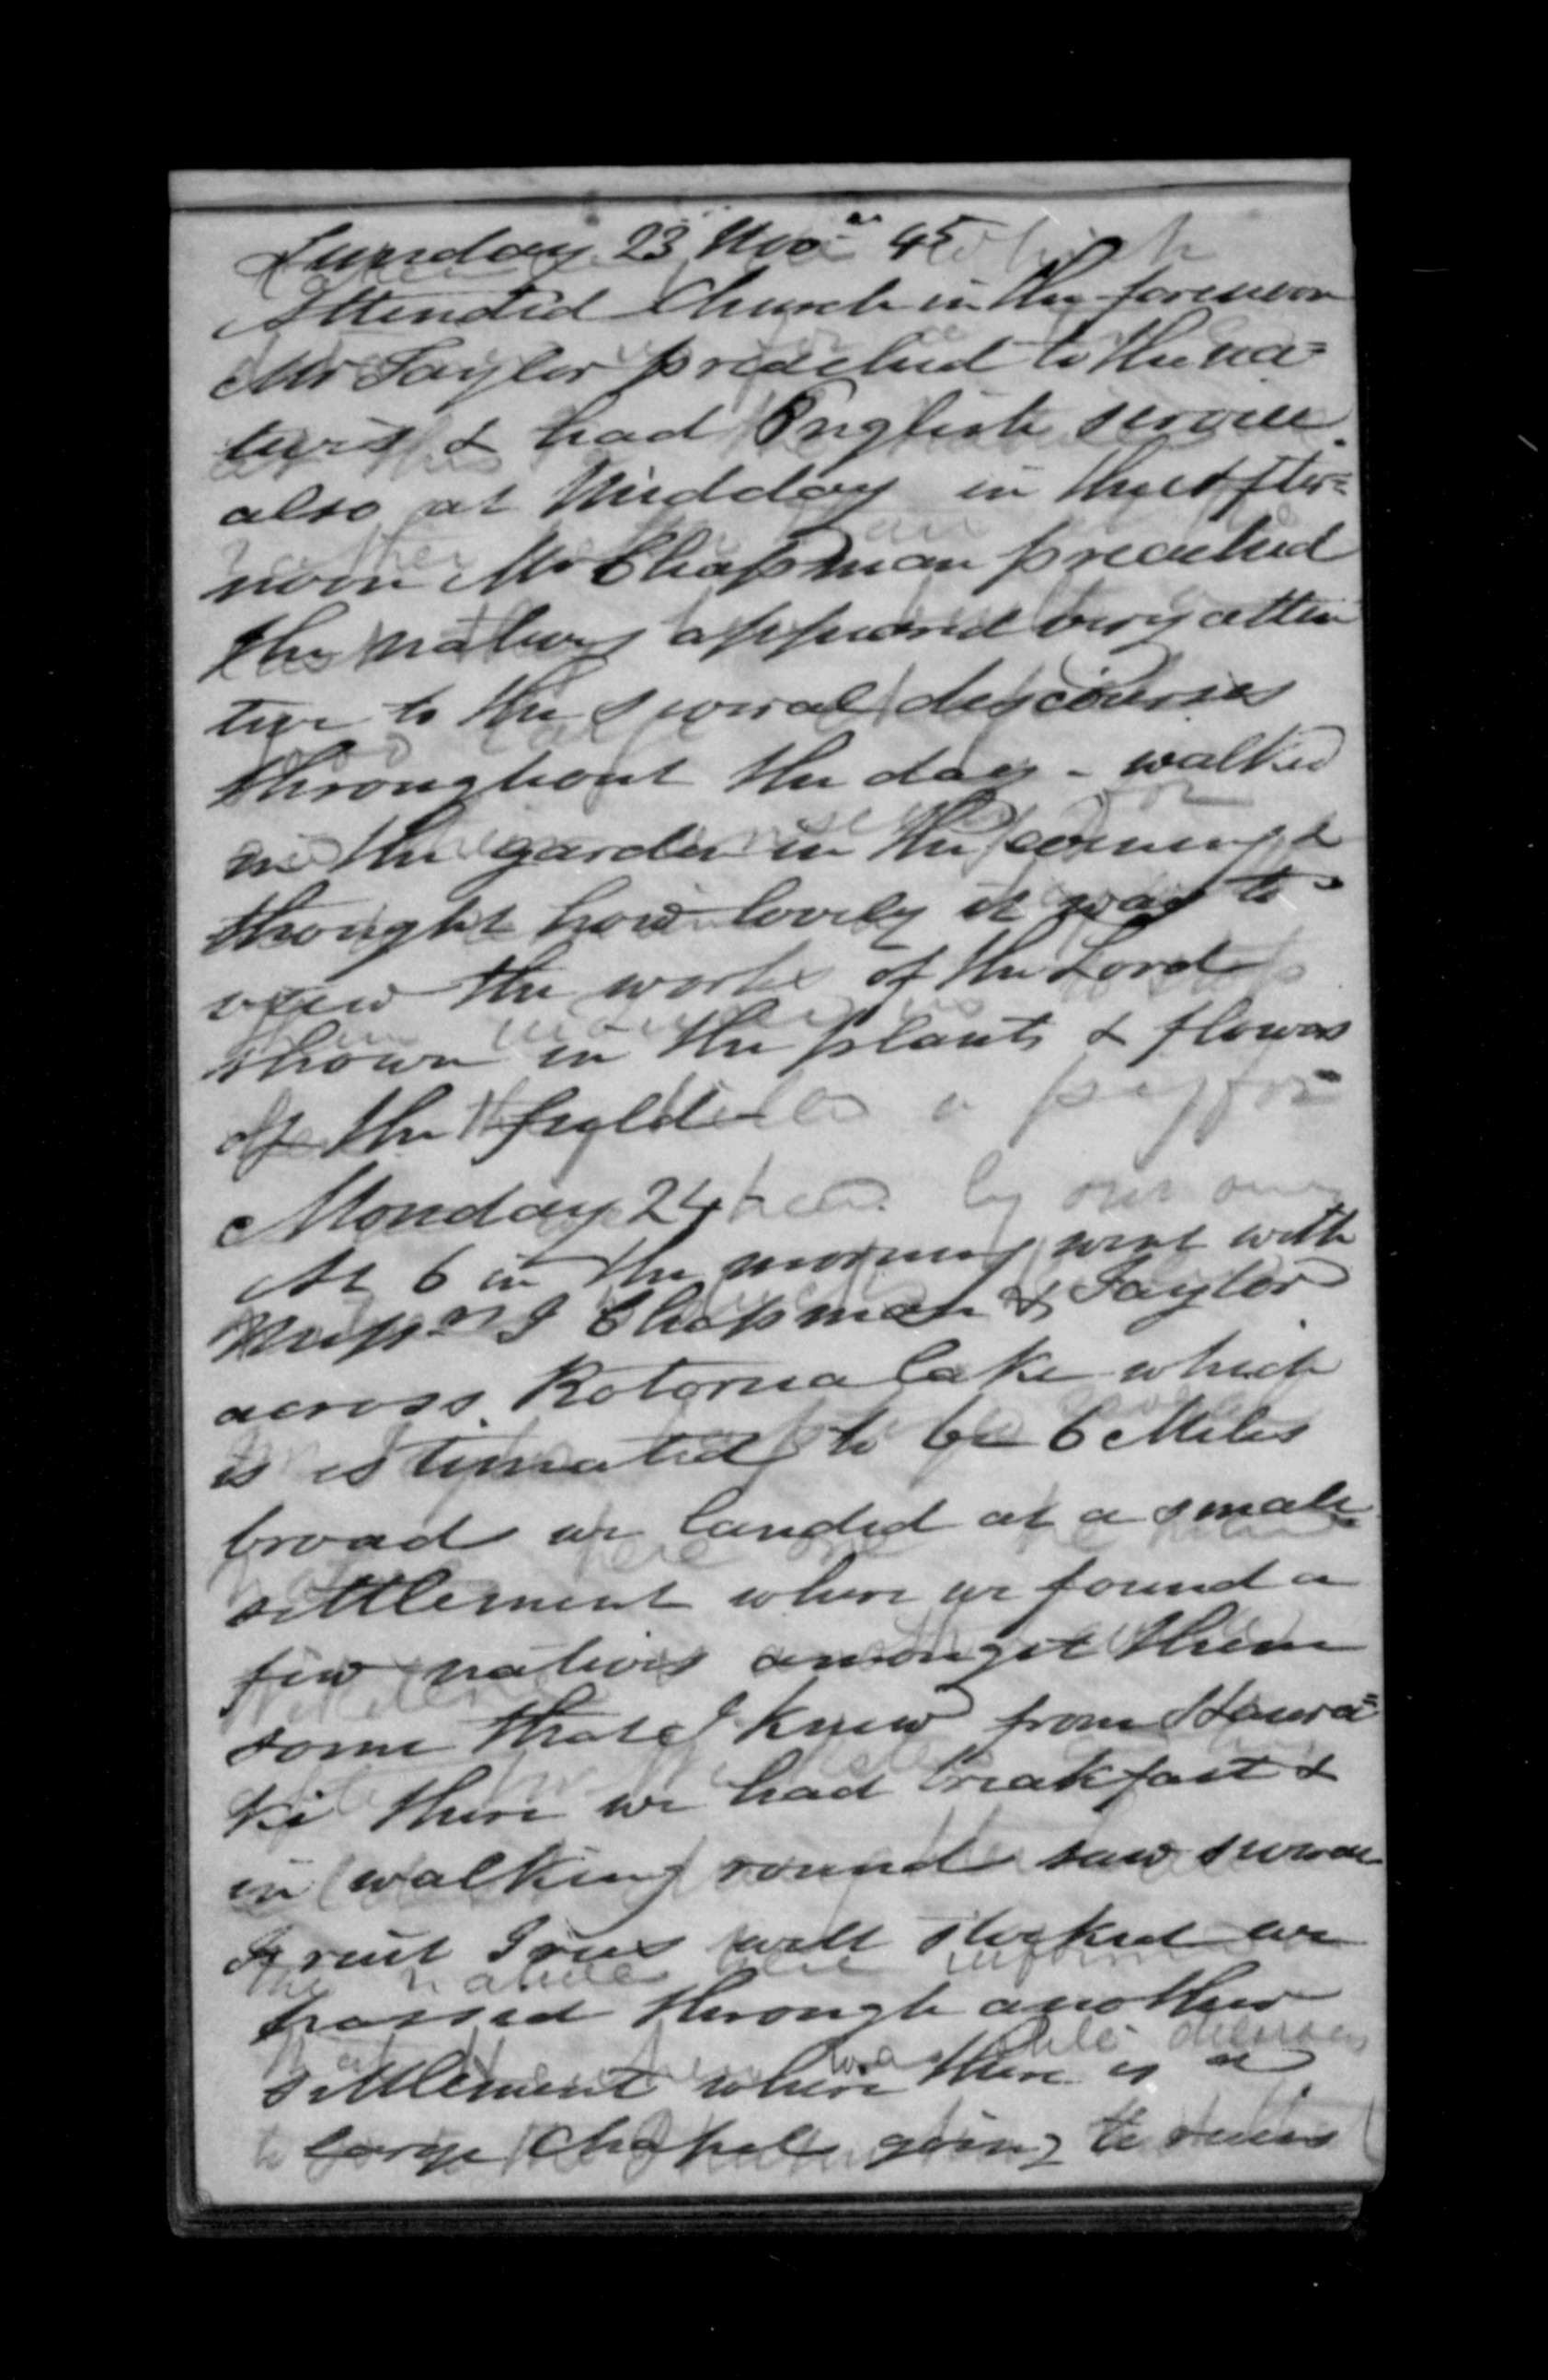 Sunday 23 Novr 45
Attended Church in the forenoon
Mr Taylor preached to the na=
tives & had English service
also at Midday in the After=
noon Mr Chapman preached
the natives appeared very atten
tive to the several discourses
throughout the day - walked
in the garden in the evening &
thought how lovely it was to
view the works of the Lord
shown in the plants & flowers
of the field -
Monday 24
At 6 in the morning went with
Messrs Chapman & Taylor
across Rotorua lake which
is estimated to be 6 Miles
broad we landed at a small
settlement where we found a
few natives amongst them
some that I knew from Haura=
ki there we had breakfast &
in walking round saw several
Fruit Trees well stocked we
passed through another
settlement where there is a
large Chapel going to ruins